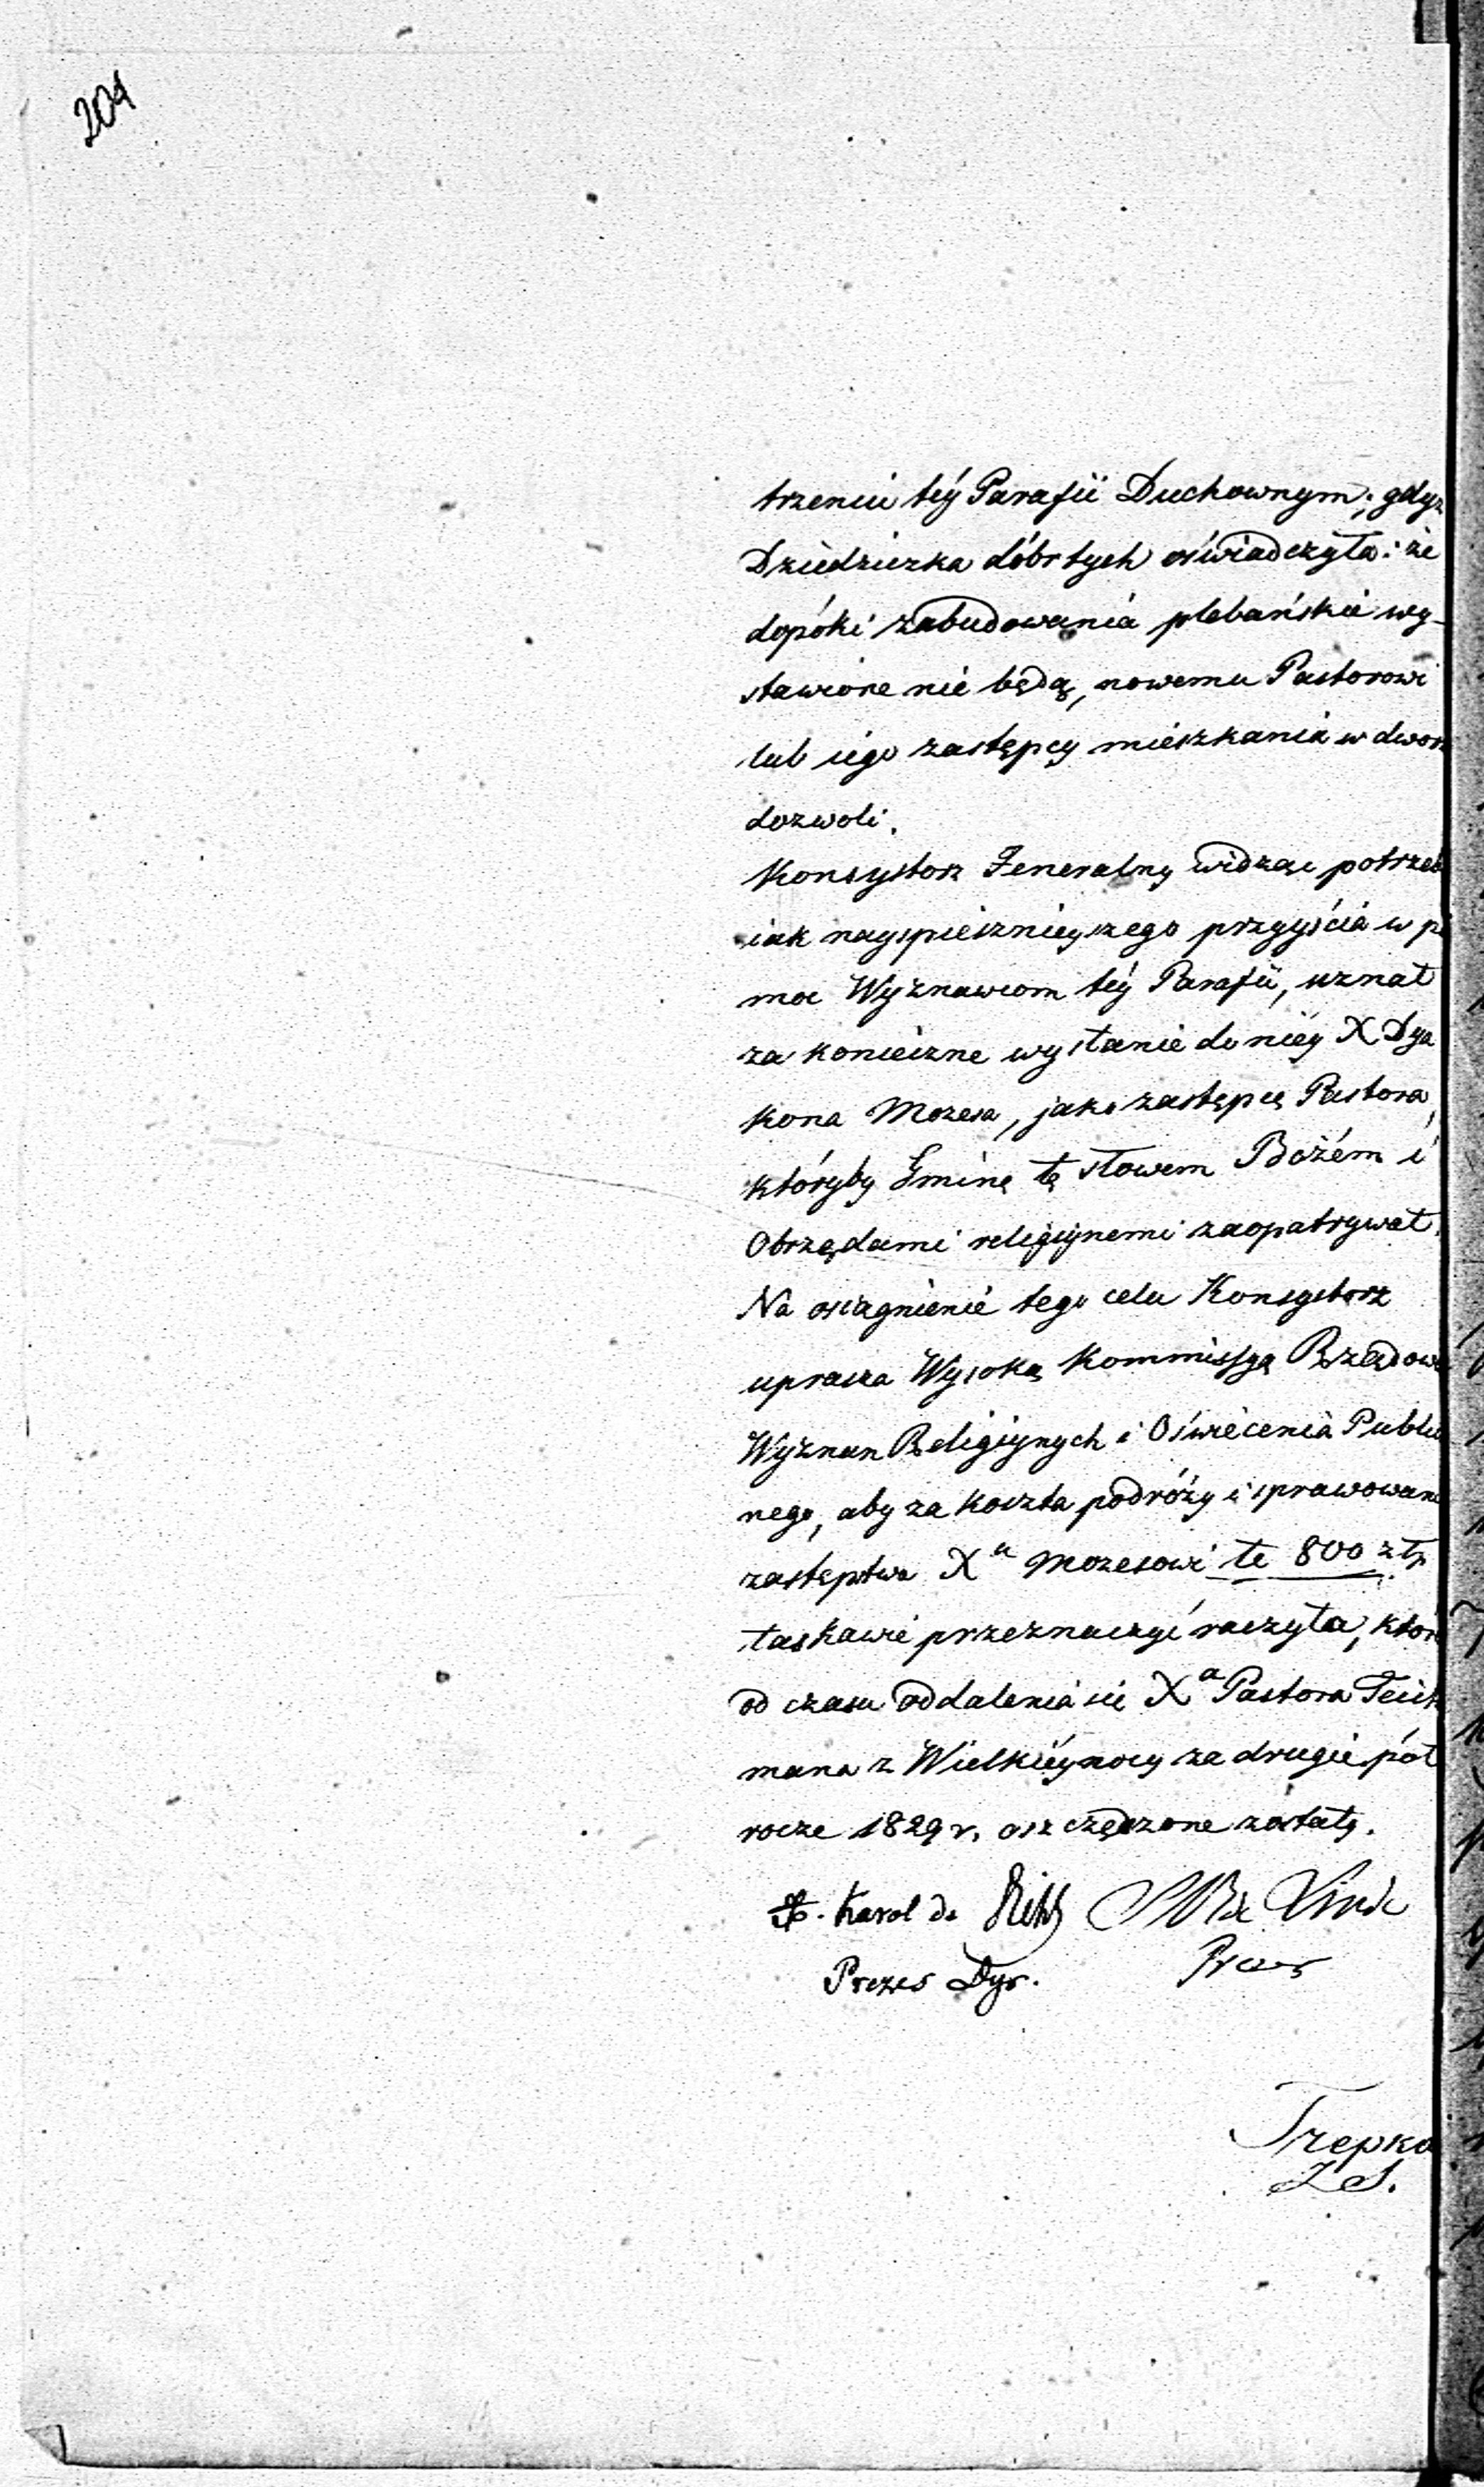 204
trzeniu téy Parafii Duchownym; gdyz
Dziedziczka dóbr tych oświadczyła: że
dopóki zabudowania plebańskie wy-
stawione nie będą, nowemu Pastorowi
lub iego zastępcy mieszkania w dwor
dozwoli.
Konsystorz Jeneralny widząc potrzeb
iak nayspieszniejszego przyyścia w po
moc Wyznawcom téy Parafii, uznał
za konieczne wysłanie do niéy X Dya
kona Mozesa, jako zastępcę Pastora,
któryby Gminę tę słowem Bożém i
Obrzędami religiynemi zaopatrywał.
Na osiągnienie tego celu Konsystorz
uprasza Wysoką Kommissyą Rządową
Wyznan Religiynych i Oświecenia Publicz
nego, aby za koszta podróży i sprawowani
zastęptwa Xu Mozesowi te 800 złp
łaskawie przeznaczyć raczyła, któr
od czasu oddalenia się Xa Pastora Teich
mana z Wielkiéynocy za drugie pół
rocze 1829 r. oszczędzone zostały.
Karol de
Prezes Dyr. Prezes
Trepka
Z S.